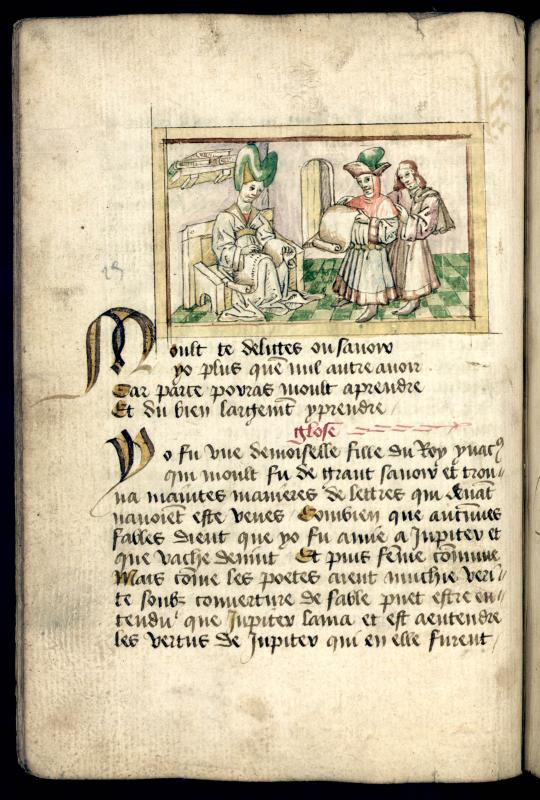 Moult te delictes ou savoir
yo plus que nul autre avoir
Car par ce pouras moult aprendre
Et du bien largemt yprendre
glose
Yo fu une demoiselle fille du Roy ynacs
qui moult fu de grant savoir et trou
va maintes manieres de lettres qui devāt
navoiēt este veues Combien que aucunes
fables dient que yo fu amie a Jupiter et
que vache devint Et puis fēme cōmune
Mais cōme les poetes aient muchie veri
te soubz couverture de fable puet estre en
tendu que Jupiter lama et est aentendre
les vertus de Jupiter qui en elle furent